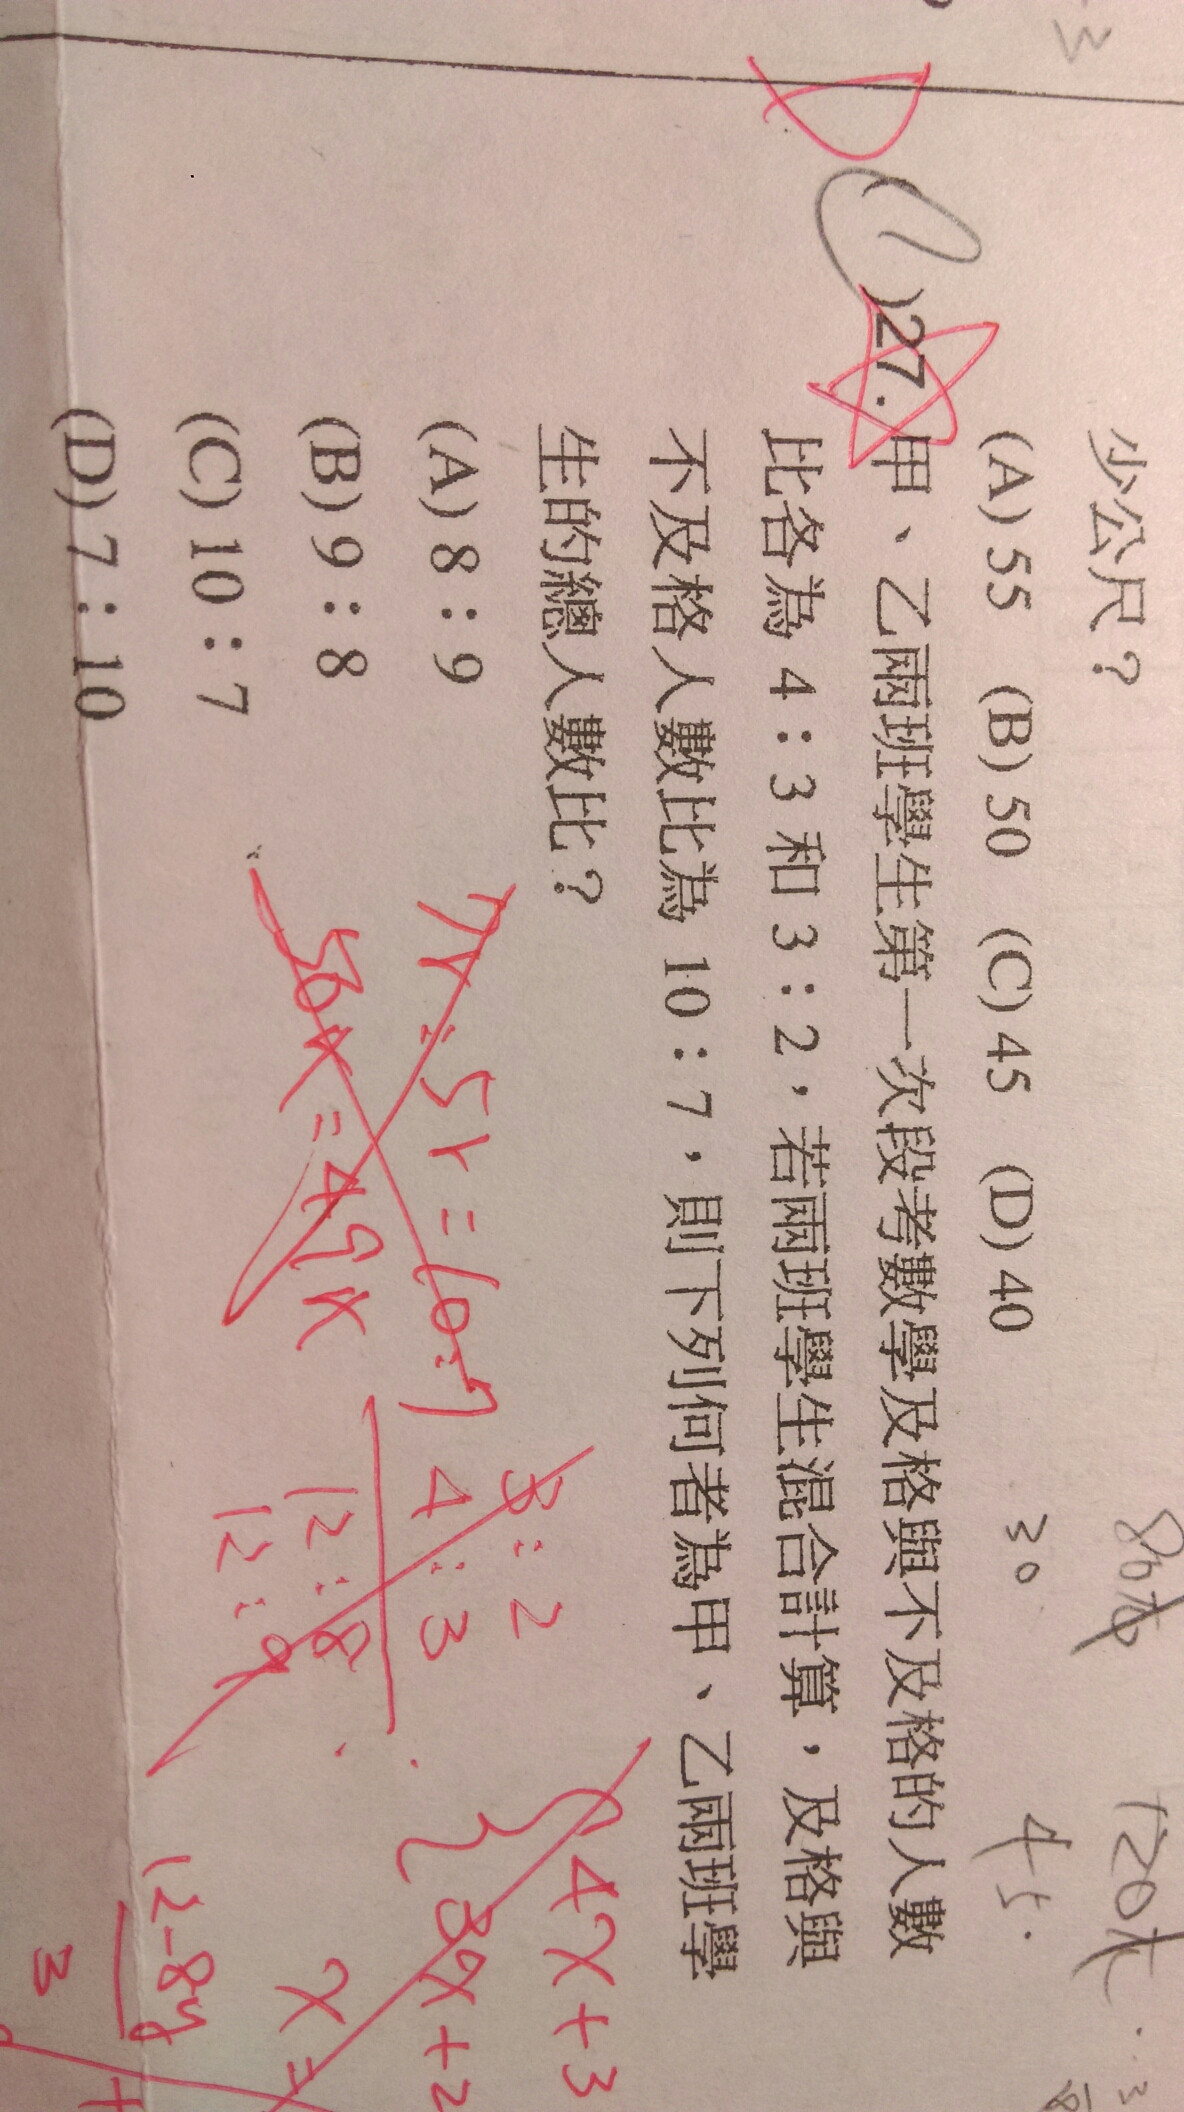 少公尺?
(A) 55 (B) 50 (C) 45 (D) 40
30
45.
D
( )27. 甲、乙兩班學生第一次段考數學及格與不及格的人數
比各為 4:3 和 3:2,若兩班學生混合計算,及格與
不及格人數比為 10:7,則下列何者為甲、乙兩班學
生的總人數比?
(A) 8:9
(B) 9:8
(C) 10:7
(D) 7:10
3:2
4:3
12:8
12:9
4x+3
3x+2
x=
12-8y
3